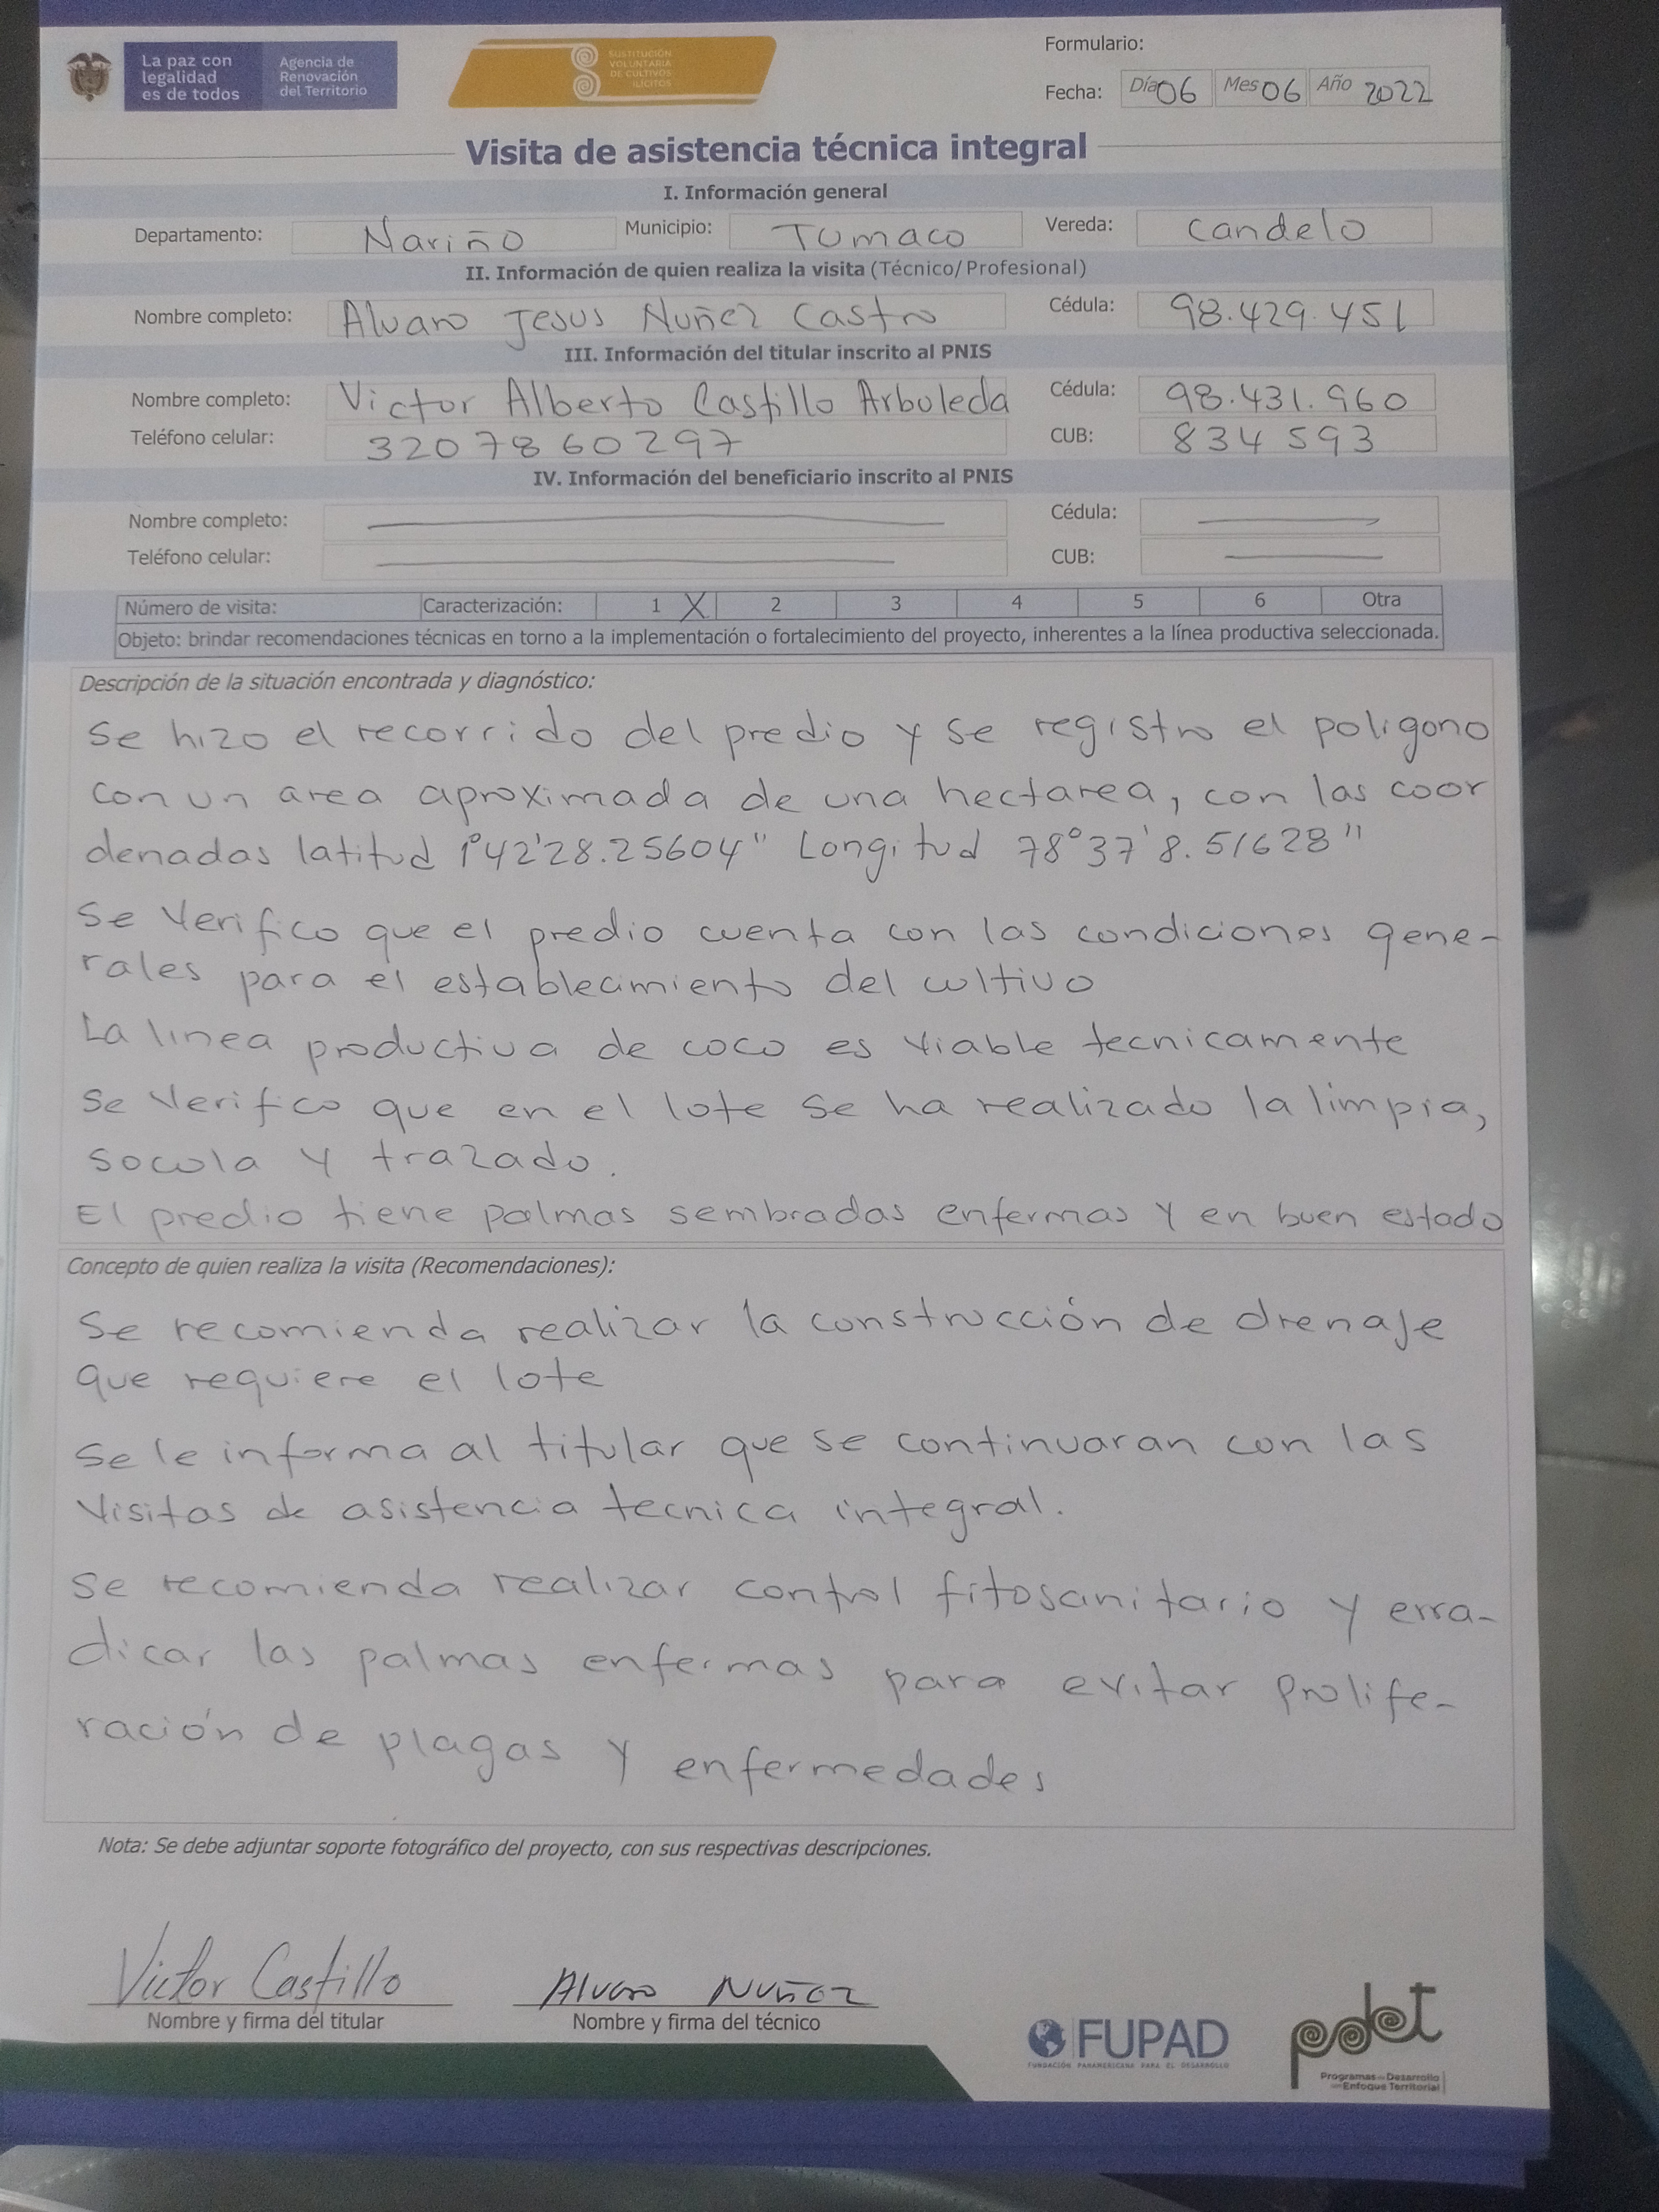 La paz con
legalidad
es de todos
Agencia de
Renovación
del Territorio
SUSTITUCIÓN
VOLUNTARIA
DE CULTIVOS
ILÍCITOS
Formulario:
Fecha: Día 06 Mes 06 Año 2022
Visita de asistencia técnica integral
I. Información general
Departamento: Nariño Municipio: Tumaco Vereda: Candelo
II. Información de quien realiza la visita (Técnico/Profesional)
Nombre completo: Alvaro Jesus Nuñez Castro Cédula: 98.429.451
III. Información del titular inscrito al PNIS
Nombre completo: Victor Alberto Castillo Arboleda Cédula: 98.431.960
Teléfono celular: 3207860297 CUB: 834593
IV. Información del beneficiario inscrito al PNIS
Nombre completo: Cédula:
Teléfono celular: CUB:
Número de visita: Caracterización: 1 X 2 3 4 5 6 Otra
Objeto: brindar recomendaciones técnicas en torno a la implementación o fortalecimiento del proyecto, inherentes a la línea productiva seleccionada.
Descripción de la situación encontrada y diagnóstico:
Se hizo el recorrido del predio y se registro el poligono
con un area aproximada de una hectarea, con las coor
denadas latitud 1°42'28.25604" Longitud 78°37'8.51628"
Se Verifico que el predio cuenta con las condiciones gene-
rales para el establecimiento del cultivo
La linea productiva de coco es viable tecnicamente
Se Verifico que en el lote se ha realizado la limpia,
socola y trazado.
El predio tiene palmas sembradas enfermas y en buen estado
Concepto de quien realiza la visita (Recomendaciones):
Se recomienda realizar la construcción de drenaje
que requiere el lote
Se le informa al titular que se continuaran con las
visitas de asistencia tecnica integral.
Se recomienda realizar control fitosanitario y erra-
dicar las palmas enfermas para evitar prolife-
ración de plagas y enfermedades
Nota: Se debe adjuntar soporte fotográfico del proyecto, con sus respectivas descripciones.
Victor Castillo Alvaro Nuñez
Nombre y firma del titular Nombre y firma del técnico
FUPAD
FUNDACIÓN PANAMERICANA PARA EL DESARROLLO
pdet
Programas de Desarrollo
con Enfoque Territorial